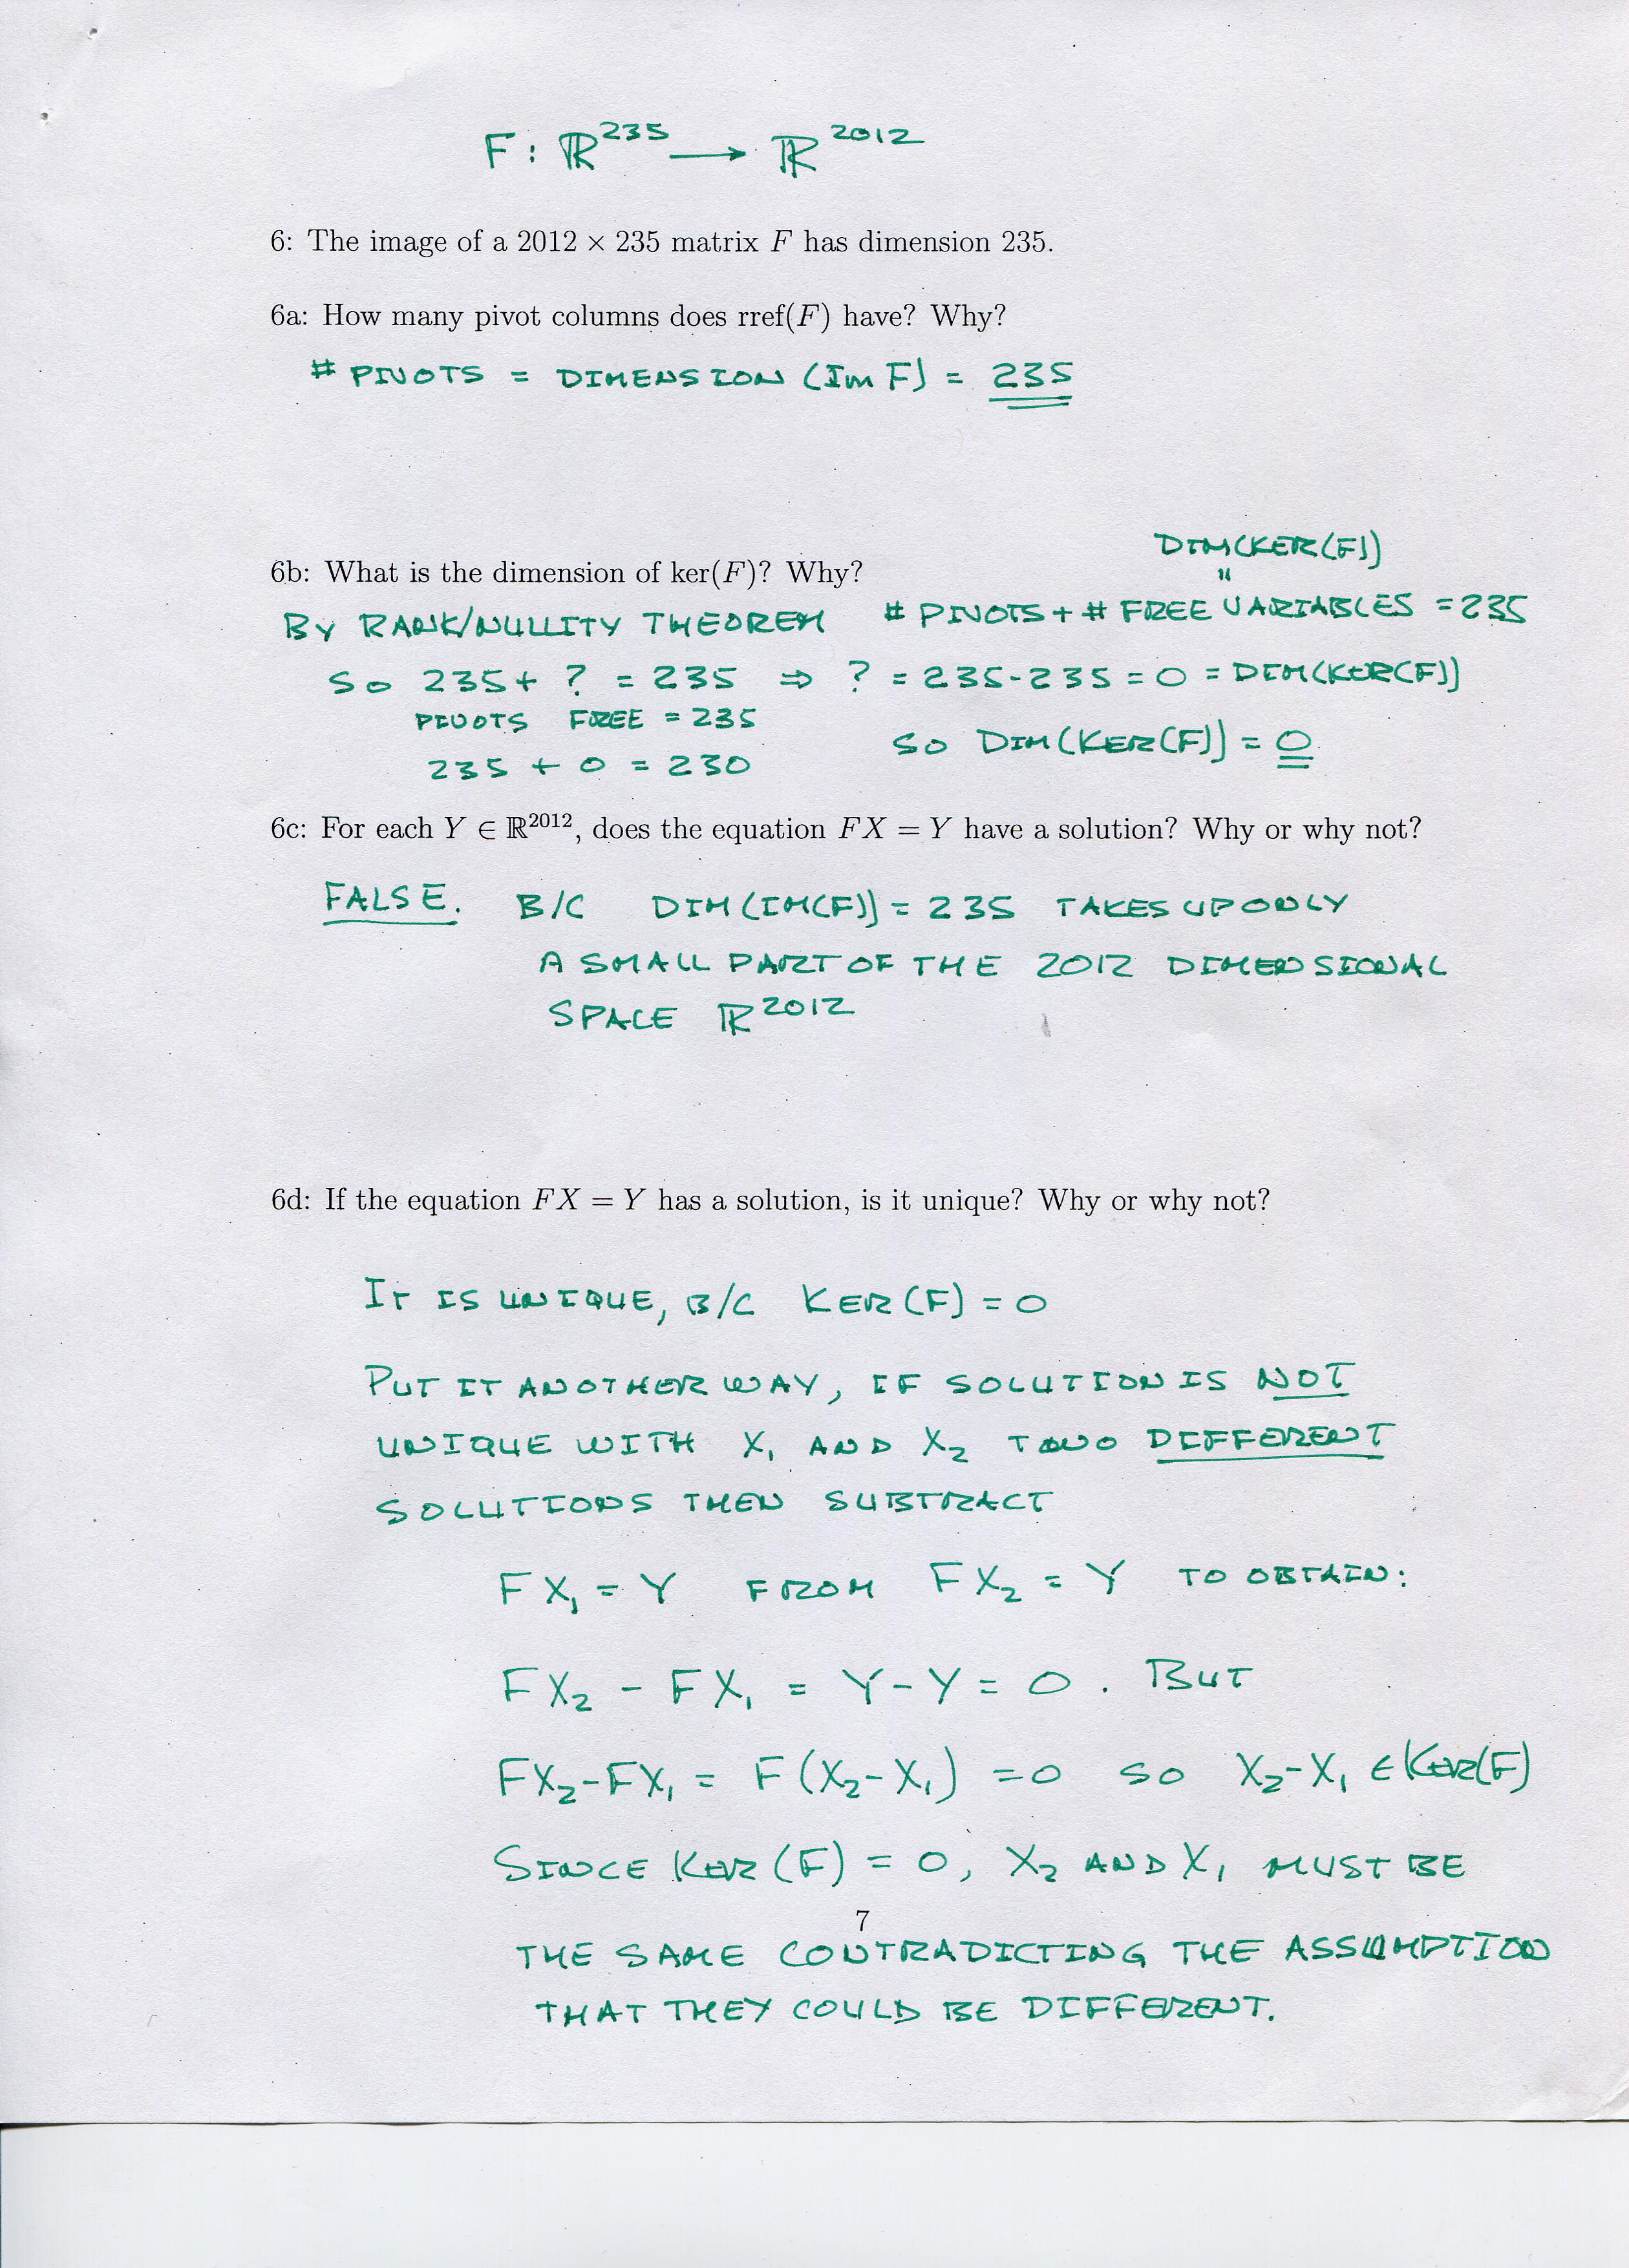 F : ℝ²³⁵ → ℝ²⁰¹²
6: The image of a 2012 × 235 matrix F has dimension 235.
6a: How many pivot columns does rref(F) have? Why?
# PIVOTS = DIMENSION (Im F) = 235
DIM(KER(F))
"
6b: What is the dimension of ker(F)? Why?
BY RANK/NULLITY THEOREM # PIVOTS + # FREE VARIABLES = 235
SO 235 + ? = 235 ⇒ ? = 235-235 = 0 = DIM(KER(F))
PIVOTS FREE = 235
SO DIM(KER(F)) = 0
235 + 0 = 230
6c: For each Y ∈ ℝ²⁰¹², does the equation FX = Y have a solution? Why or why not?
FALSE. B/C DIM(IM(F)) = 235 TAKES UP ONLY
A SMALL PART OF THE 2012 DIMENSIONAL
SPACE ℝ²⁰¹²
6d: If the equation FX = Y has a solution, is it unique? Why or why not?
IT IS UNIQUE, B/C KER(F) = 0
PUT IT ANOTHER WAY, IF SOLUTION IS NOT
UNIQUE WITH X₁ AND X₂ TWO DIFFERENT
SOLUTIONS THEN SUBTRACT
FX₁ = Y FROM FX₂ = Y TO OBTAIN:
FX₂ - FX₁ = Y - Y = 0. BUT
FX₂-FX₁ = F(X₂-X₁) = 0 SO X₂-X₁ ∈ KER(F)
SINCE KER(F) = 0, X₂ AND X₁ MUST BE
7
THE SAME CONTRADICTING THE ASSUMPTION
THAT THEY COULD BE DIFFERENT.